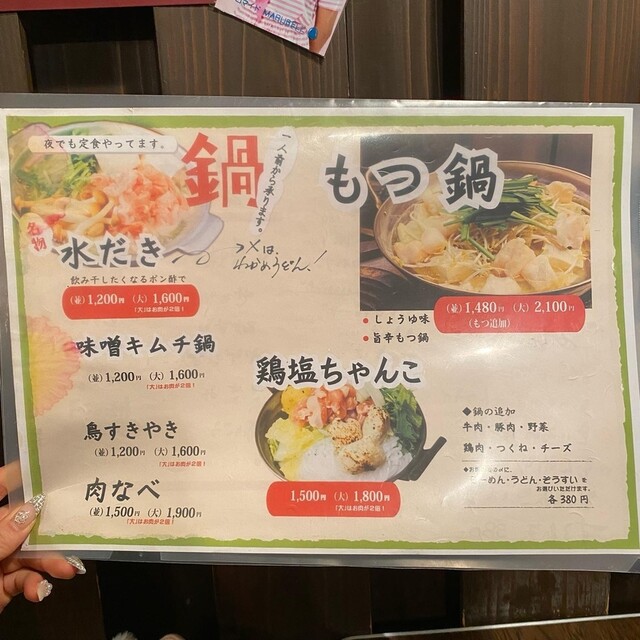 MARUBEL
夜でも定食やってます。
鍋
一人前から承ります。
もつ鍋
名物
水だき
〆は、
わかめうどん!
飲み干したくなるポン酢で
(並)1,200円 (大)1,600円
「大」はお肉が2倍!
(並)1,480円 (大)2,100円
(もつ追加)
● しょうゆ味
● 旨辛もつ鍋
味噌キムチ鍋
(並)1,200円 (大)1,600円
「大」はお肉が2倍!
鶏塩ちゃんこ
1,500円 (大)1,800円
「大」はお肉が2倍!
鳥すきやき
(並)1,200円 (大)1,600円
「大」はお肉が2倍!
肉なべ
(並)1,500円 (大)1,900円
「大」はお肉が2倍!
◆鍋の追加
牛肉・豚肉・野菜
鶏肉・つくね・チーズ
らーめん・うどん・ぞうすい を
お選びいただけます。
各380円